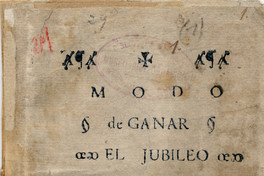 29
M O D O
de GANAR
EL JUBILEO